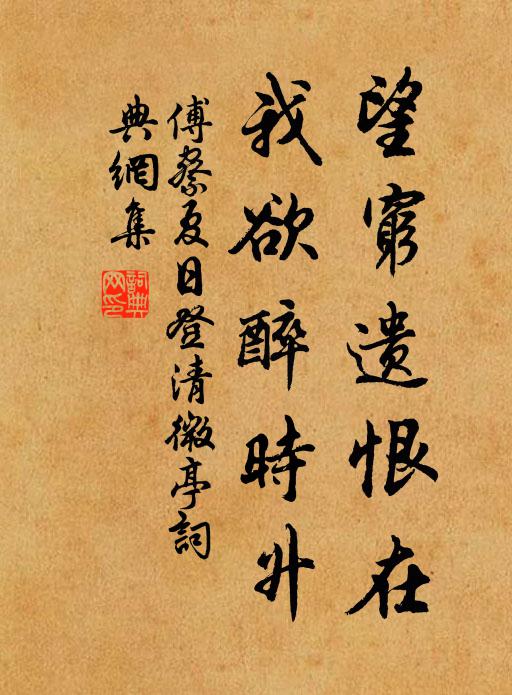 望窮遺恨在
我欲醉時升
傅察夏日登清微亭詞
典網集
詞典網印